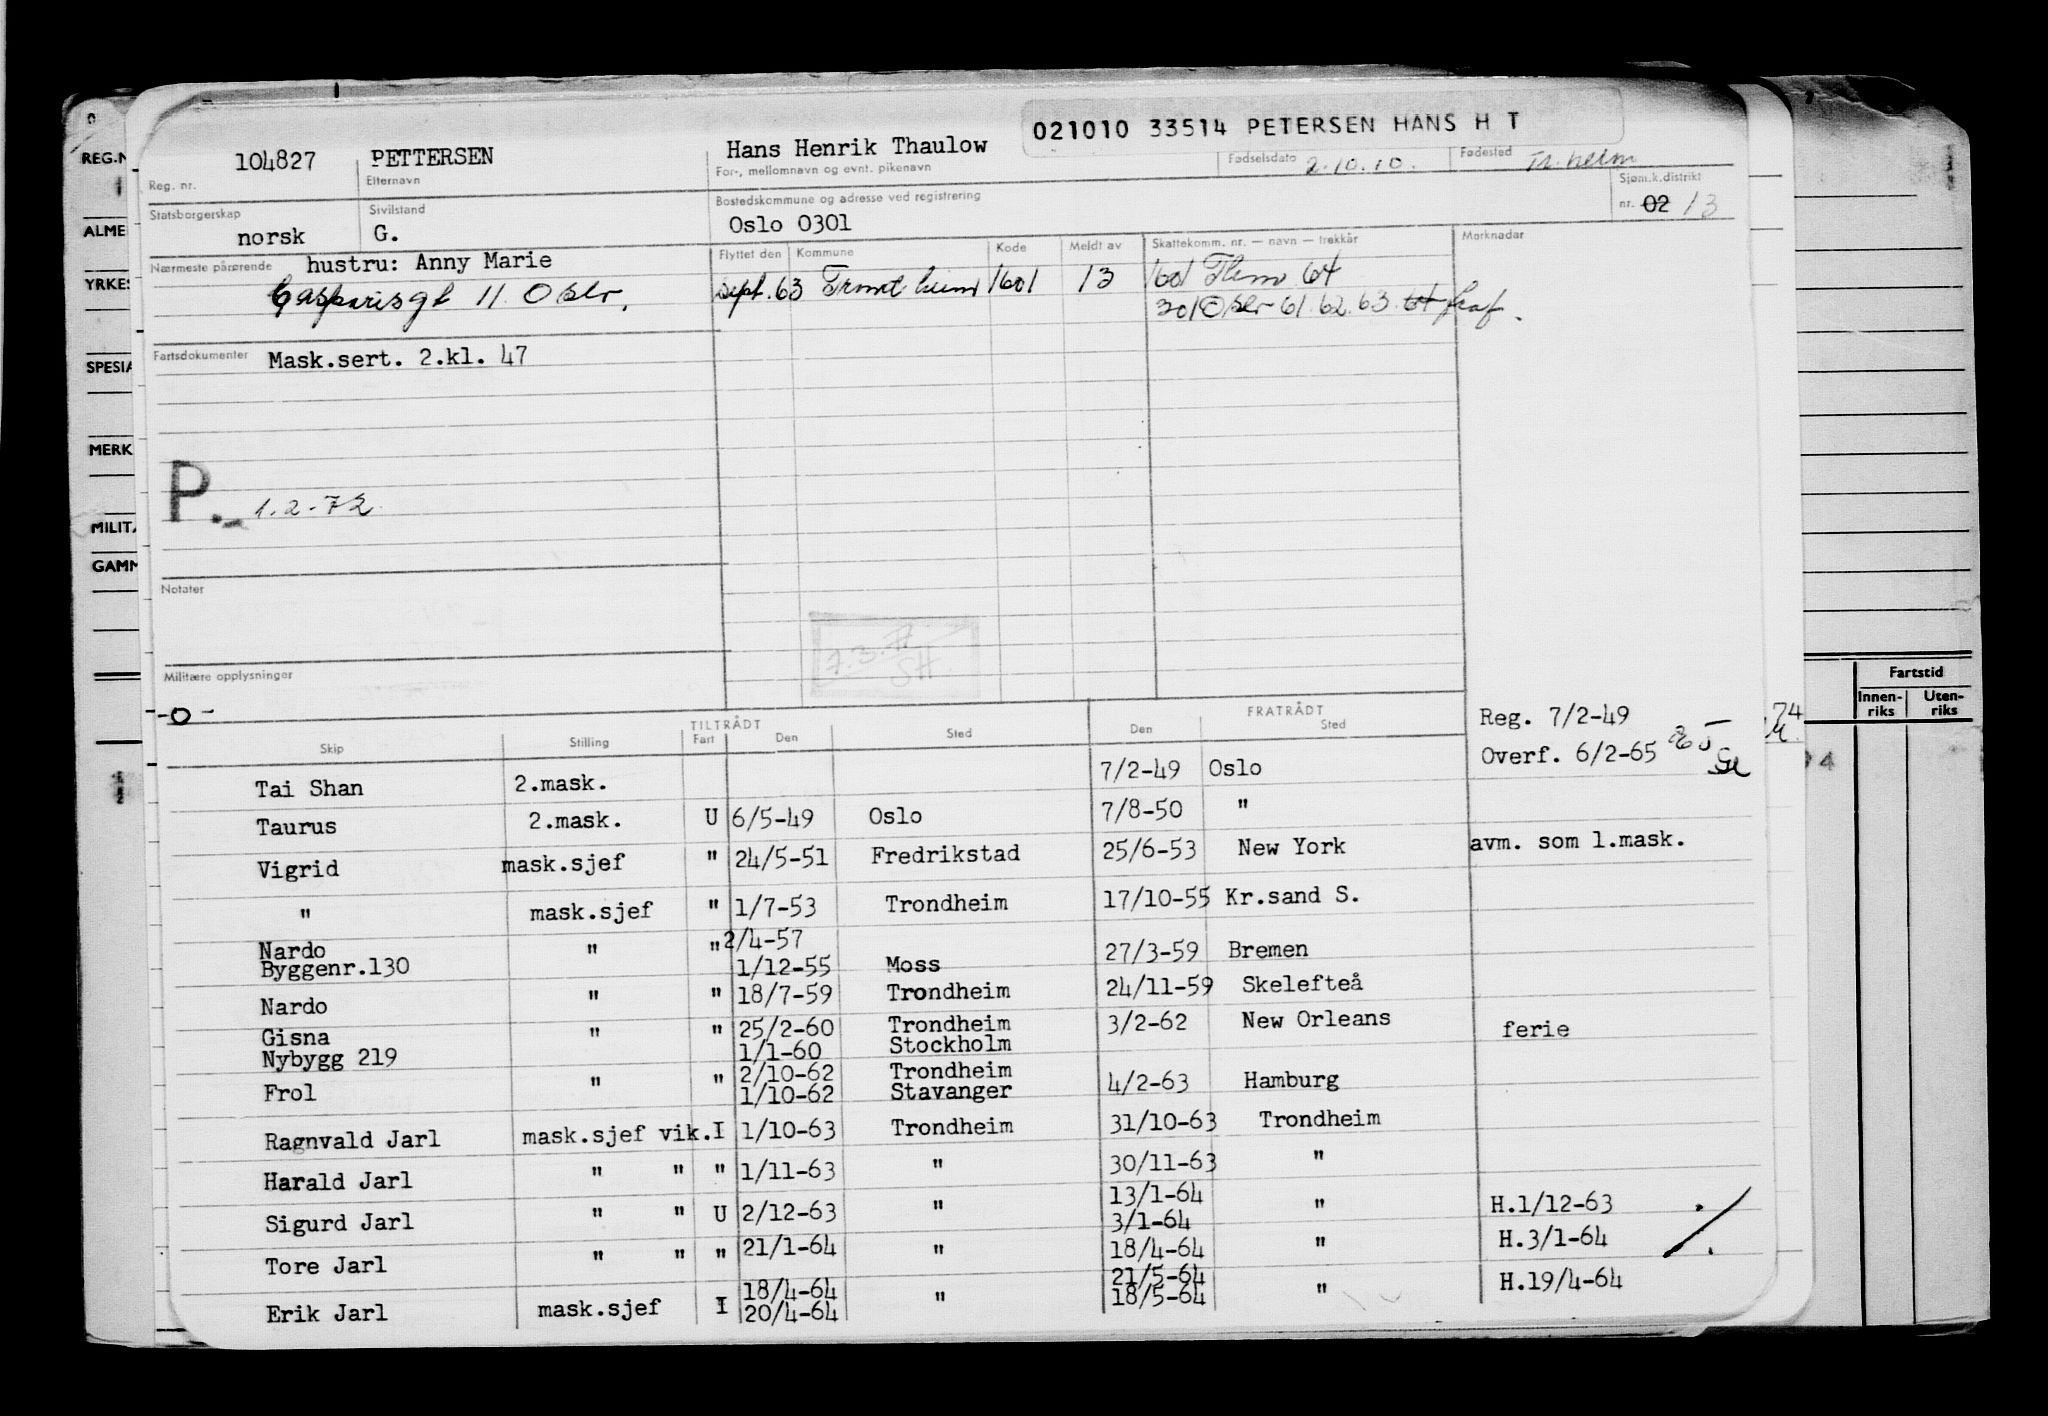 021010 33514 PETERSEN HANS H T
104827 PETTERSEN Hans Henrik Thaulow 2.10.10. Tr.heim
Reg. nr. Etternavn For-, mellomnavn og evnt. pikenavn Fødselsdato Fødested
Statsborgerskap Sivilstand Bostedskommune og adresse ved registrering Sjøm.k.distrikt
norsk G. Oslo 0301 nr. 02 13
Nærmeste pårørende hustru: Anny Marie Flyttet den Kommune Kode Meldt av Skattekomm. nr. — navn — trekkår Merknader
Casparisgt 11 Oslo. sept. 63 Trondheim 1601 13 1601 Thm 64
301 Oslo 61. 62. 63. 64
Fartsdokumenter Mask.sert. 2.kl. 47
P. 1.2-72
Notater
SH
Militære opplysninger
-0-
TILTRÅDT FRATRÅDT Reg. 7/2-49
Skip Stilling Fart Den Sted Den Sted Overf. 6/2-65
Tai Shan 2.mask. 7/2-49 Oslo
Taurus 2.mask. U 6/5-49 Oslo 7/8-50 "
Vigrid mask.sjef " 24/5-51 Fredrikstad 25/6-53 New York avm. som 1.mask.
" mask.sjef " 1/7-53 Trondheim 17/10-55 Kr.sand S.
Nardo " " 2/4-57 27/3-59 Bremen
Byggenr.130 1/12-55 Moss
Nardo " " 18/7-59 Trondheim 24/11-59 Skelefteå
Gisna " " 25/2-60 Trondheim 3/2-62 New Orleans ferie
Nybygg 219 1/1-60 Stockholm
Frol " " 2/10-62 Trondheim 4/2-63 Hamburg
1/10-62 Stavanger
Ragnvald Jarl mask.sjef vik. I 1/10-63 Trondheim 31/10-63 Trondheim
Harald Jarl " " " 1/11-63 " 30/11-63 "
Sigurd Jarl " " U 2/12-63 " 13/1-64 " H.1/12-63
3/1-64
Tore Jarl " " " 21/1-64 " 18/4-64 " H.3/1-64
Erik Jarl mask.sjef I 18/4-64 " 21/5-64 " H.19/4-64
20/4-64 18/5-64
REG.N
ALME
YRKES
SPESIA
MERK
MILITÆ
GAMM
Fartstid
Innen-riks Uten-riks
74